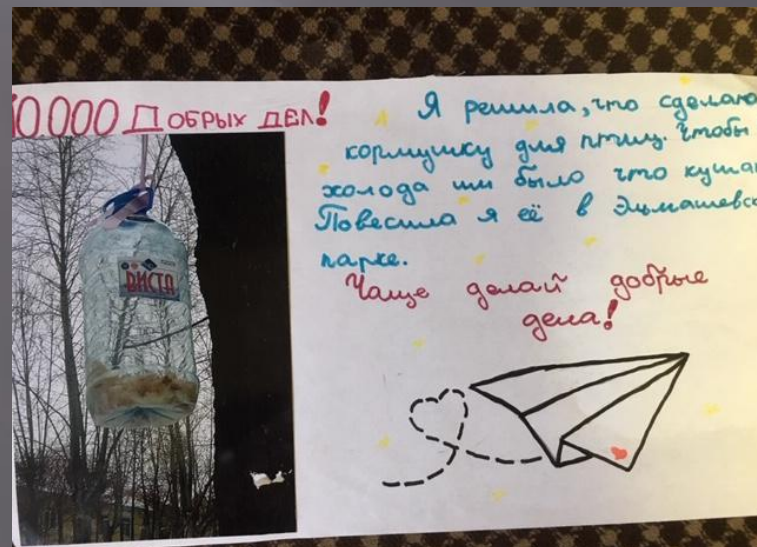 10.000 ДОБРЫХ ДЕЛ!
Я решила, что сделаю
кормушку для птиц. Чтобы
холода им было что кушать
Повесила я её в Эльмашевск
парке.
Чаще делай добрые
дела!
ВИСТА